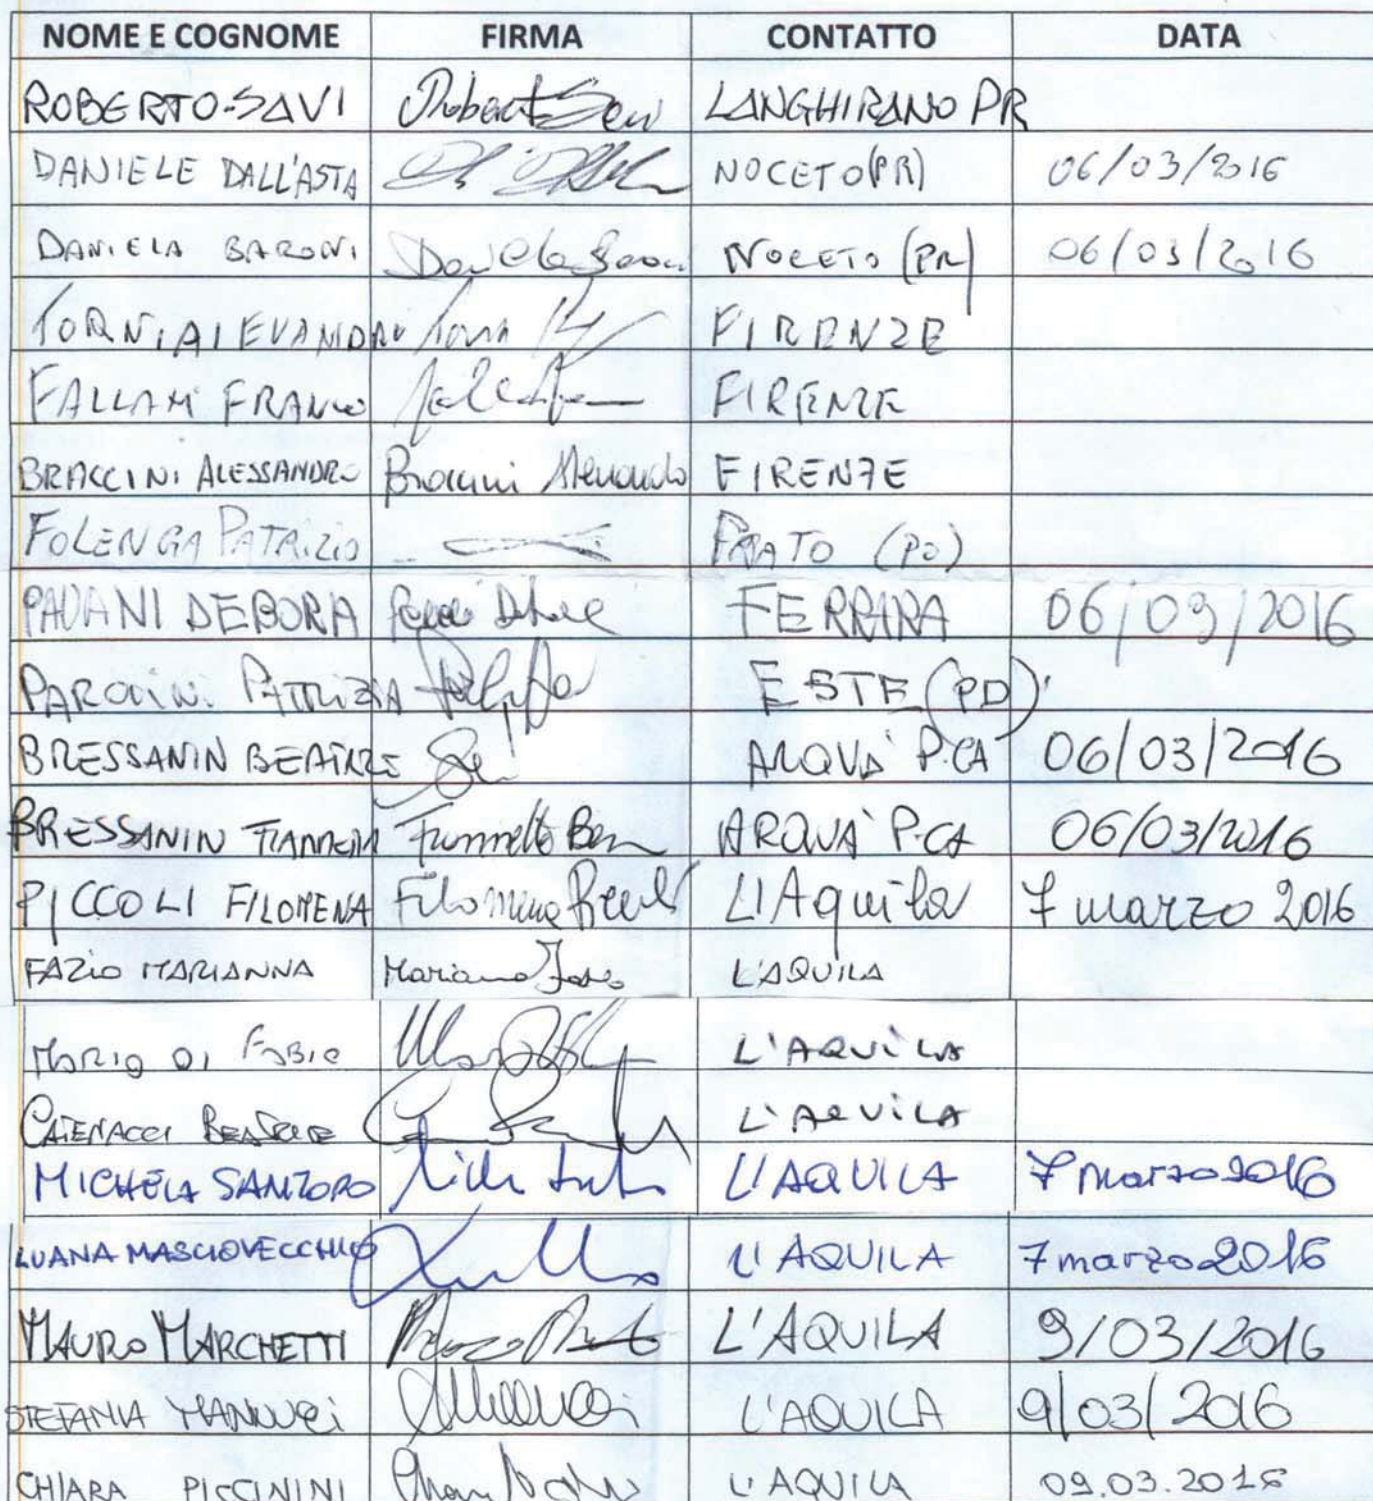 NOME E COGNOME FIRMA CONTATTO DATA
ROBERTO SAVI LANGHIRANO PR
DANIELE DALL'ASTA NOCETO (PR) 06/03/2016
DANIELA BARONI Daniela Baroni NOCETO (PR) 06/03/2016
TORNIAI EVANDRO FIRENZE
FALLANI FRANCO FIRENZE
BRACCINI ALESSANDRO Braccini Alessandro FIRENZE
FOLENGA PATRIZIO PRATO (PO)
PAVANI DEBORA FERRARA 06/03/2016
PATRIZIA ESTE (PD)
BRESSANIN BEATRICE ARQUA' P.CA 06/03/2016
BRESSANIN FIAMMETTA ARQUA' P.CA 06/03/2016
PICCOLI FILOMENA Filomena Piccoli L'Aquila 7 marzo 2016
FAZIO MARIANNA Marianna Fazio L'AQUILA
MARIO DI FABIO L'AQUILA
CATENACCI L'AQUILA
MICHELA SANTORO L'AQUILA 7 marzo 2016
LUANA MASCIOVECCHIO L'AQUILA 7 marzo 2016
MAURO MARCHETTI L'AQUILA 9/03/2016
STEFANIA MANNUCCI L'AQUILA 9/03/2016
CHIARA PICCININI L'AQUILA 09.03.2016